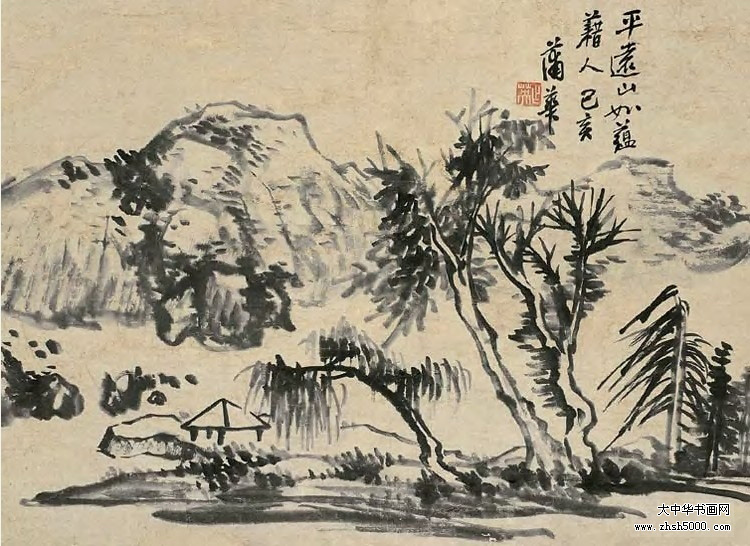 平遠山如蘊
藉人 己亥
蒲華
大中华书画网
www.zhsh5000.com